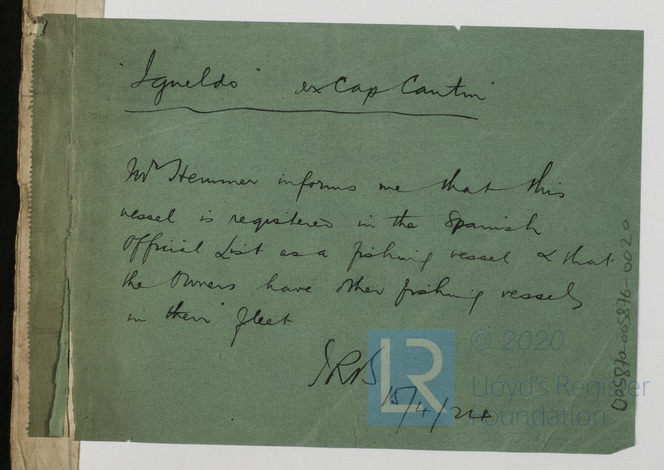 "Igueldo" ex Cap Cantin
Mr Hemmer informs me that this
vessel is registered in the Spanish
Official List as a fishing vessel & that
the Owners have other fishing vessels
in their fleet
15/4/24
© 2020
LR
Lloyd's Register
Foundation
005870-005876-0020